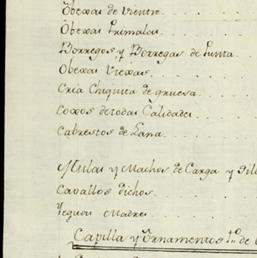 Obexas de vientre
Obexas Primalas
Borregos y Borregas de Punta
Obexas Viexas
Cria Chiquita de gruesa
Coxos de todas Calidades
Cabrestos de Lana
Mulas y Machos de Carga y Sill
Cavallos dichos
Yeguas Madres
Capilla y Ornamentos